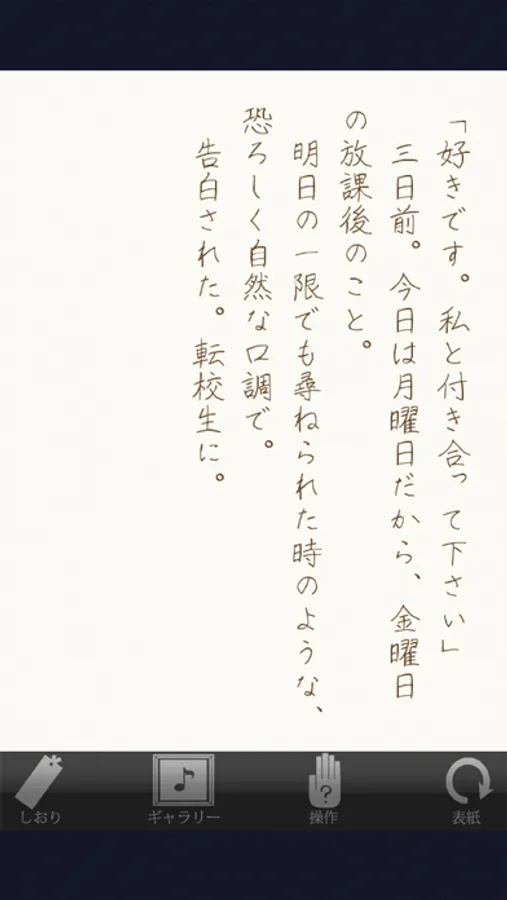 「好きです。私と付き合って下さい」
三日前。今日は月曜日だから、金曜日
の放課後のこと。
明日の一限でも尋ねられた時のような、
恐ろしく自然な口調で。
告白された。転校生に。
しおり
ギャラリー
?
操作
表紙